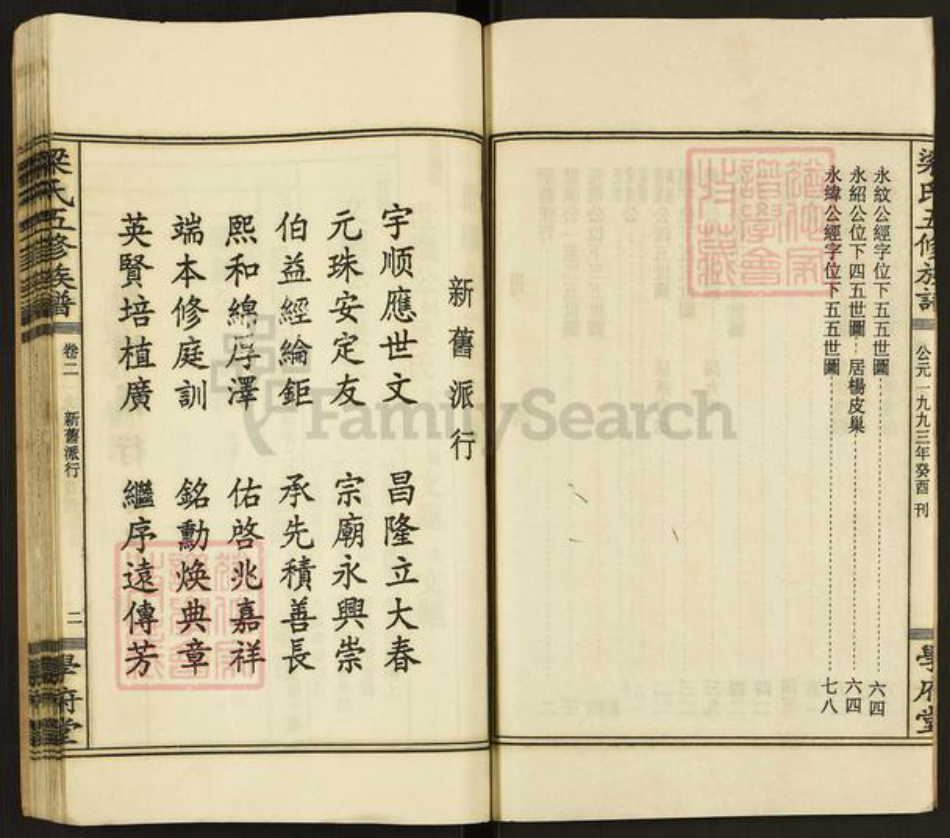 梁氏五修族譜
公元一九九三年癸酉 刊
學府堂
永紋公經字位下五五世圖 六四
永紹公位下四五世圖 居楊皮巢 六四
永緯公經字位下五五世圖 七八
新舊派行
宇顺應世文 昌隆立大春
元珠安定友 宗廟永興崇
伯益經綸鉅 承先積善長
熙和綿厚澤 佑啓兆嘉祥
端本修庭訓 銘勳煥典章
英賢培植廣 繼序遠傳芳
梁氏五修族譜
卷二 新舊派行 二
學府堂
FamilySearch